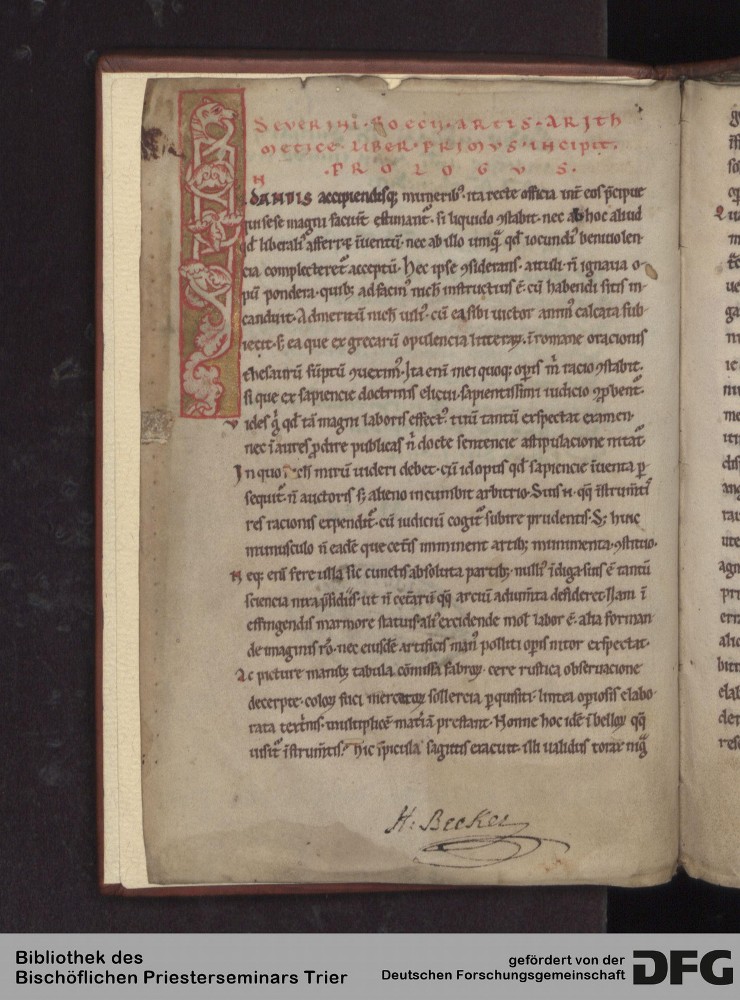 SEVERINI · BOECII · ARTIS · ARITH
METICE · LIBER · PRIMVS · INCIPIT ·
· P R O L O G V S ·
IN DANDIS accipiendisq; munerib᷒ · ita recte officia int̄ eos p̄cipue
qui sese magni faciūt estimant᷒ · si liquido ꝯstabit · nec ab hoc aliud
qd̓ liberali᷒ afferret īuentū · nec ab illo umq̄ qd̓ iocundi᷒ beniuolen-
cia complecteret᷒ acceptū · Hec ipse ꝯsiderans · attuli n̄ ignaua o-
pū pondera · quib; ad facin᷒ nich̄ instructius ē · cū habendi sitis in-
canduit · Ad meritū nich̄ uili᷒ · cū ea sibi uictor anim᷒ calcata sub-
iecit · s; ea que ex grecarū opulencia litterꝝ · ī romane oracionis
thesaurū sūptū ꝯuexim᷒ · Ita enī mei quoq; opis m̄ racio ꝯstabit ·
si que ex sapiencie doctrinis elicui · sapientissimi iudicio ꝯp̄bent᷒ ·
Vides g̓ qd̓ tā magni laboris effect᷒ · tuū tantū exspectat examen ·
nec ī aures ꝓdire publicas n̄ docte sentencie astipulacione nitat᷒
In quo nich̄ mirū uideri debet · cū id opus qd̓ sapiencie īuenta ꝑ
sequit᷒ · n̄ auctoris s; alieno incumbit arbitrio · Suis n̄ · qq̄ īstrum̄tis
res racionis expendit᷒ · cū iudiciū cogit᷒ subire prudentis · S; huic
munusculo n̄ eadē que cet̄is imminent artib; munimenta ꝯstituo ·
Neq; enī fere ulla sic cunctis absoluta partib; nulli᷒ īdiga suis ē tantū
sciencia nixa p̄sidiis · ut n̄ cet̄arū qq̄ arciū adium̄ta desideret · Nam ī
effingendis marmore statuis · ali᷒ excidende mol̓ labor ē · alia forman
de imaginis rō · nec eiusdē artificis man᷒ politi opis nitor exspectat ·
Ac picture manib; tabula cōmissa fabroꝝ · cere rustica obseruacione
decerpte · coloꝝ fuci mercatoꝝ sollercia ꝑquisiti · lintea opiosis elabo-
rata textrinis · multiplicē mat̄iā prestant · Nonne hoc idē ī belloꝝ qq̄
uisit᷒ īstrum̄tis? Hic spicula sagittis exacuit · illi ualidus torax nig̓
H: Becker
Bibliothek des
Bischöflichen Priesterseminars Trier
gefördert von der
Deutschen Forschungsgemeinschaft
DFG